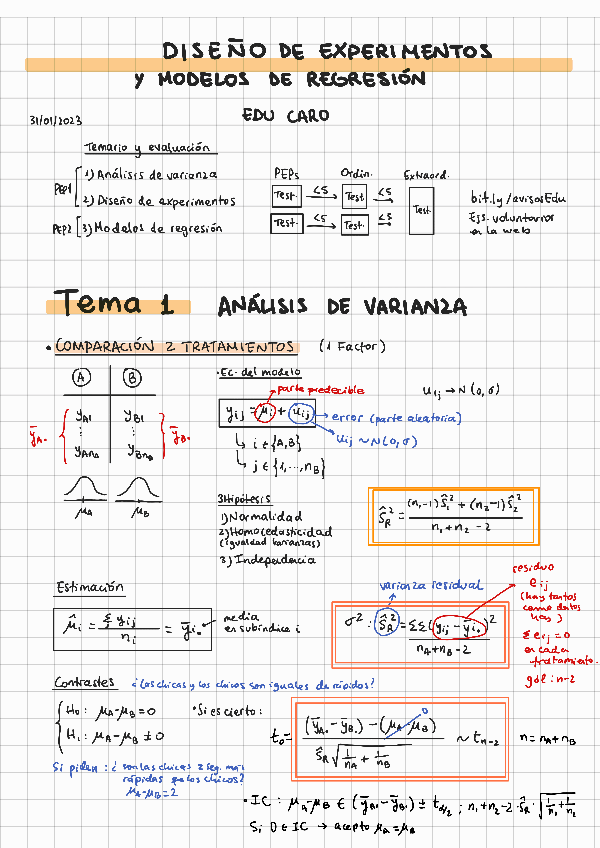 DISEÑO DE EXPERIMENTOS
y MODELOS DE REGRESIÓN
31/01/2023
EDU CARO
Temario y evaluación
PEP1 [ 1) Análisis de varianza
2) Diseño de experimentos
PEP2 [ 3) Modelos de regresión
PEPs Ordin. Extraord.
Test. <5 Test <5 Test
Test. <5 Test. <5
bit.ly/avisosEdu
Ejs. voluntarios
en la web
Tema 1 ANÁLISIS DE VARIANZA
• COMPARACIÓN 2 TRATAMIENTOS (1 Factor)
A B
yA1 yB1
⋮ ⋮
yAnA yBnB
ȳA. ȳB.
μA μB
• Ec. del modelo
parte predecible
yij = μi + uij
error (parte aleatoria)
uij ~ N(0,σ)
uij → N(0,σ)
↳ i ∈ {A,B}
↳ j ∈ {1,...,nB}
3 Hipótesis
1) Normalidad
2) Homocedasticidad
(igualdad varianzas)
3) Independencia
ŜR² = ((n1-1)Ŝ1² + (n2-1)Ŝ2²) / (n1+n2-2)
Estimación
μ̂i = Σj yij / ni = ȳi.
→ media
en subíndice i
varianza residual
σ² : ŜR² = ΣΣ(yij - ȳi.)² / (nA+nB-2)
residuo
eij
(hay tantos
como datos
hay)
Σeij = 0
en cada
tratamiento.
gdl: n-2
Contrastes ¿Las chicas y los chicos son iguales de rápidos?
H0: μA-μB = 0
H1: μA-μB ≠ 0
• Si es cierto:
t0 = ((ȳA. - ȳB.) - (μA-μB)) / (ŜR √(1/nA + 1/nB)) ~ tn-2
0
n = nA+nB
Si piden: ¿son las chicas 2 seg. más
rápidas que los chicos?
μA-μB = 2
• IC: μA-μB ∈ (ȳA. - ȳB.) ± tα/2 ; n1+n2-2 · ŜR · √(1/n1 + 1/n2)
Si 0 ∈ IC → acepto μA = μB